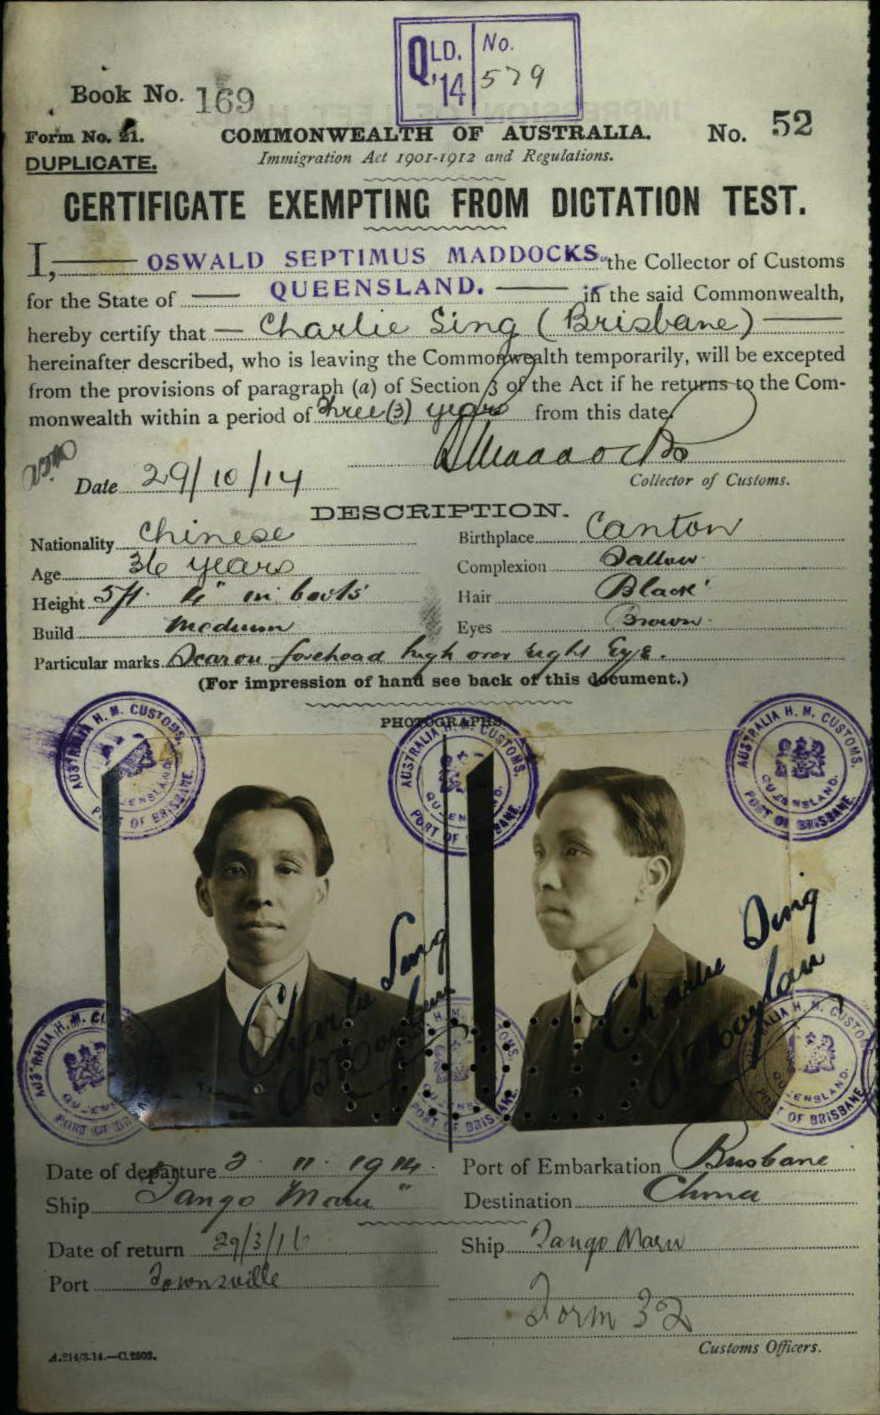 QLD. No.
'14 579
Book No. 169
Form No. 21. COMMONWEALTH OF AUSTRALIA. No. 52
DUPLICATE. Immigration Act 1901-1912 and Regulations.
CERTIFICATE EXEMPTING FROM DICTATION TEST.
I, OSWALD SEPTIMUS MADDOCKS the Collector of Customs
for the State of QUEENSLAND. in the said Commonwealth,
hereby certify that Charlie Sing (Brisbane)
hereinafter described, who is leaving the Commonwealth temporarily, will be excepted
from the provisions of paragraph (a) of Section 3 of the Act if he returns to the Com-
monwealth within a period of three (3) years from this date.
Maddocks
Date 29/10/14 Collector of Customs.
DESCRIPTION.
Nationality Chinese Birthplace Canton
Age 36 years Complexion Sallow
Height 5ft 4" in boots Hair Black
Build Medium Eyes Brown
Particular marks Scar on forehead high over right Eye.
(For impression of hand see back of this document.)
PHOTOGRAPHS.
AUSTRALIA H. M. CUSTOMS. QUEENSLAND. PORT OF BRISBANE.
AUSTRALIA H. M. CUSTOMS. QUEENSLAND. PORT OF BRISBANE.
AUSTRALIA H. M. CUSTOMS. QUEENSLAND. PORT OF BRISBANE.
Charlie Sing
Charlie Sing
AUSTRALIA H. M. CUSTOMS. QUEENSLAND. PORT OF BRISBANE.
AUSTRALIA H. M. CUSTOMS. QUEENSLAND. PORT OF BRISBANE.
AUSTRALIA H. M. CUSTOMS. QUEENSLAND. PORT OF BRISBANE.
Date of departure 2. 11. 1914. Port of Embarkation Brisbane
Ship Tango Maru" Destination China
Date of return 29/3/16 Ship Tango Maru
Port Townsville
Form 32
A.214/3.14.—C.2503. Customs Officers.